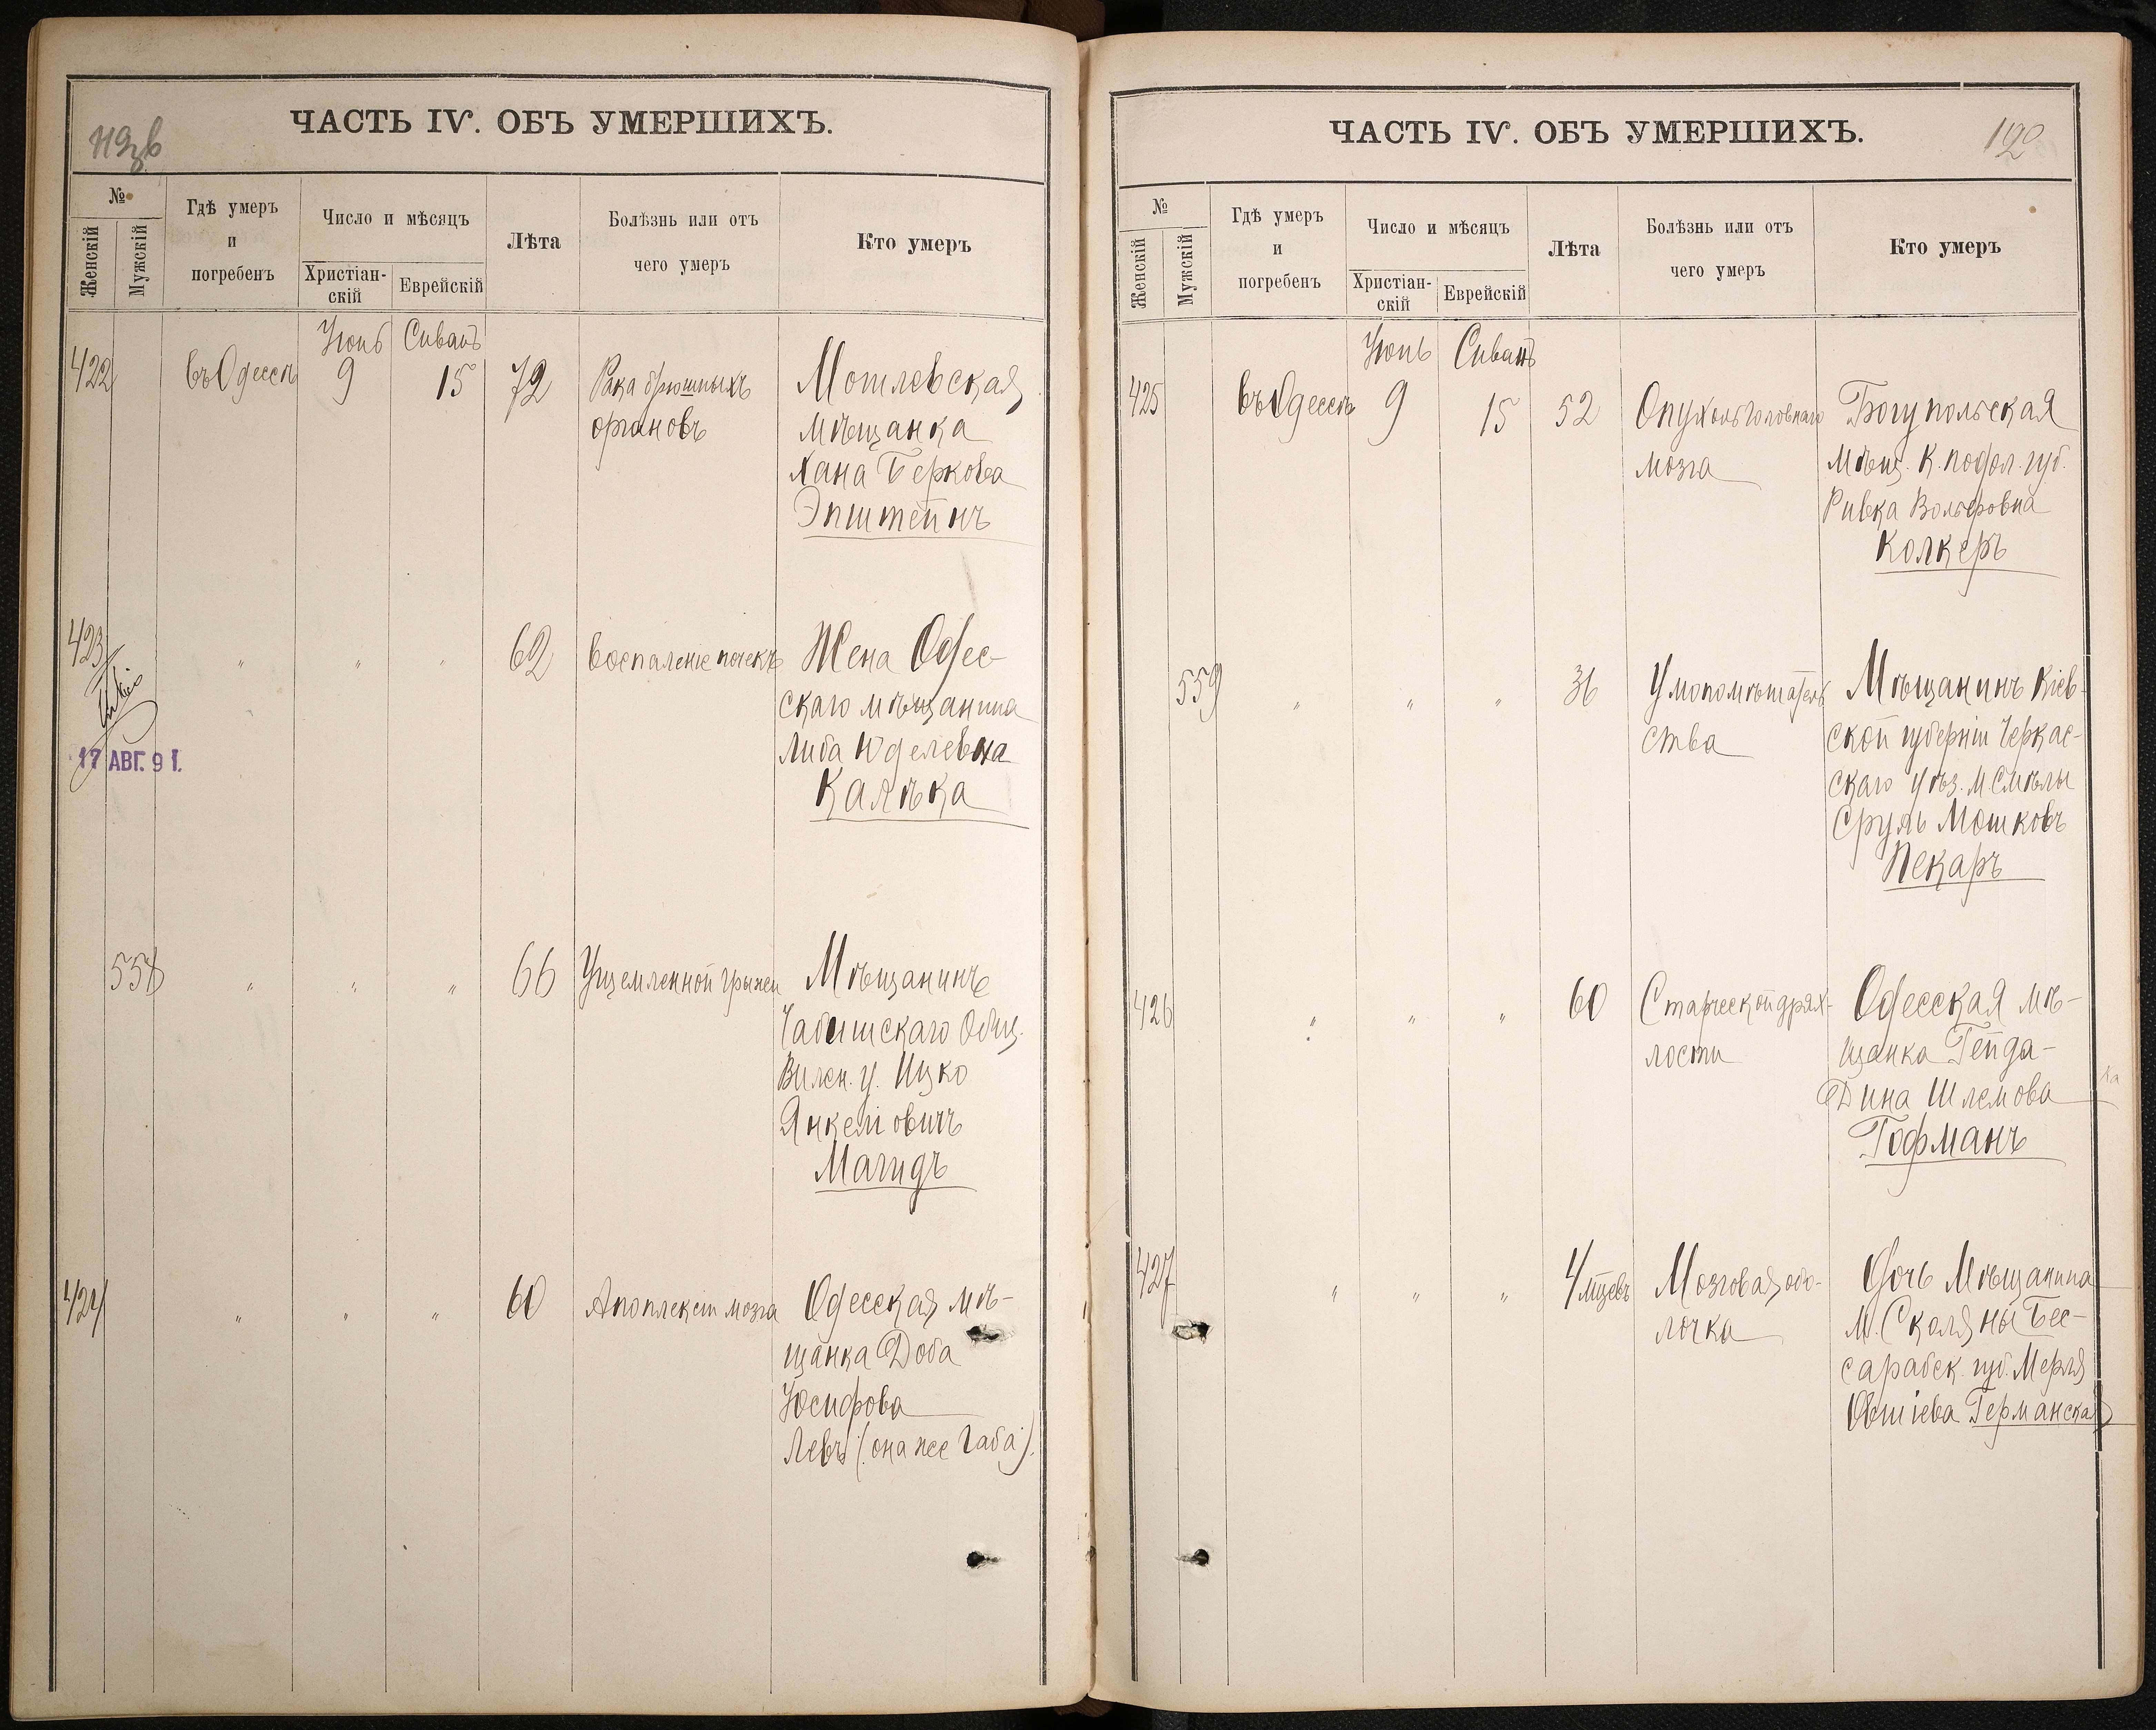 ЧАСТЬ IV. ОБЪ УМЕРШИХЪ.
№
Женскій
Мужскій
Гдѣ умеръ
и
погребенъ
Число и мѣсяцъ
Христіан-
скій
Еврейскій
Лѣта
Болѣзнь или отъ
чего умеръ
Кто умеръ
Іюнь Сиванъ
422 въ Одессѣ 9 15 72
Рака брюшныхъ
органовъ
мѣщанка
Хана Беркова
Эпштейнъ
423 " " " 62
Воспаленіе почекъ
Жена Одес-
скаго мѣщанина
Либа Юделевна
Калѣка
17 АВГ. 91.
558 " " " 66
Ущемленной грыжей
Мѣщанинъ
Общ.
Вилен. у. Ицко
Янкелiовичъ
Магидъ
424 " " " 60
Апоплексiи мозга
Одесская мѣ-
щанка Доба
Іосифова
Левъ (она же Габа).
ЧАСТЬ IV. ОБЪ УМЕРШИХЪ.
192
№
Женскій
Мужскій
Гдѣ умеръ
и
погребенъ
Число и мѣсяцъ
Христіан-
скій
Еврейскій
Лѣта
Болѣзнь или отъ
чего умеръ
Кто умеръ
Іюнь Сиванъ
425 въ Одессѣ 9 15 52
Опухоль головнаго
мозга
Богупольская
мѣщ. К. подол. губ.
Ривка Вольфовна
Колкеръ
559 " " " 36
Умопомѣшатель
ства
Мѣщанинъ Кіев-
ской губерніи Черкас-
скаго уѣз. м. Смѣлы
Сруль Мошковъ
Пекаръ
426 " " " 60
Старческой дрях-
лости
Одесская мѣ-
щанка Гейда-
Дина Шлемова
Гофманъ
427 " " " 4 мцевъ
Мозговая обо-
лочка
Дочь Мѣщанина
М. Скаляны Бес-
сарабск. губ. Мерля
Овшіева Германская